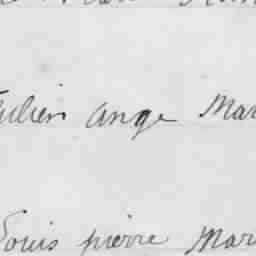 Julien ange Mar
Louis pierre Mar